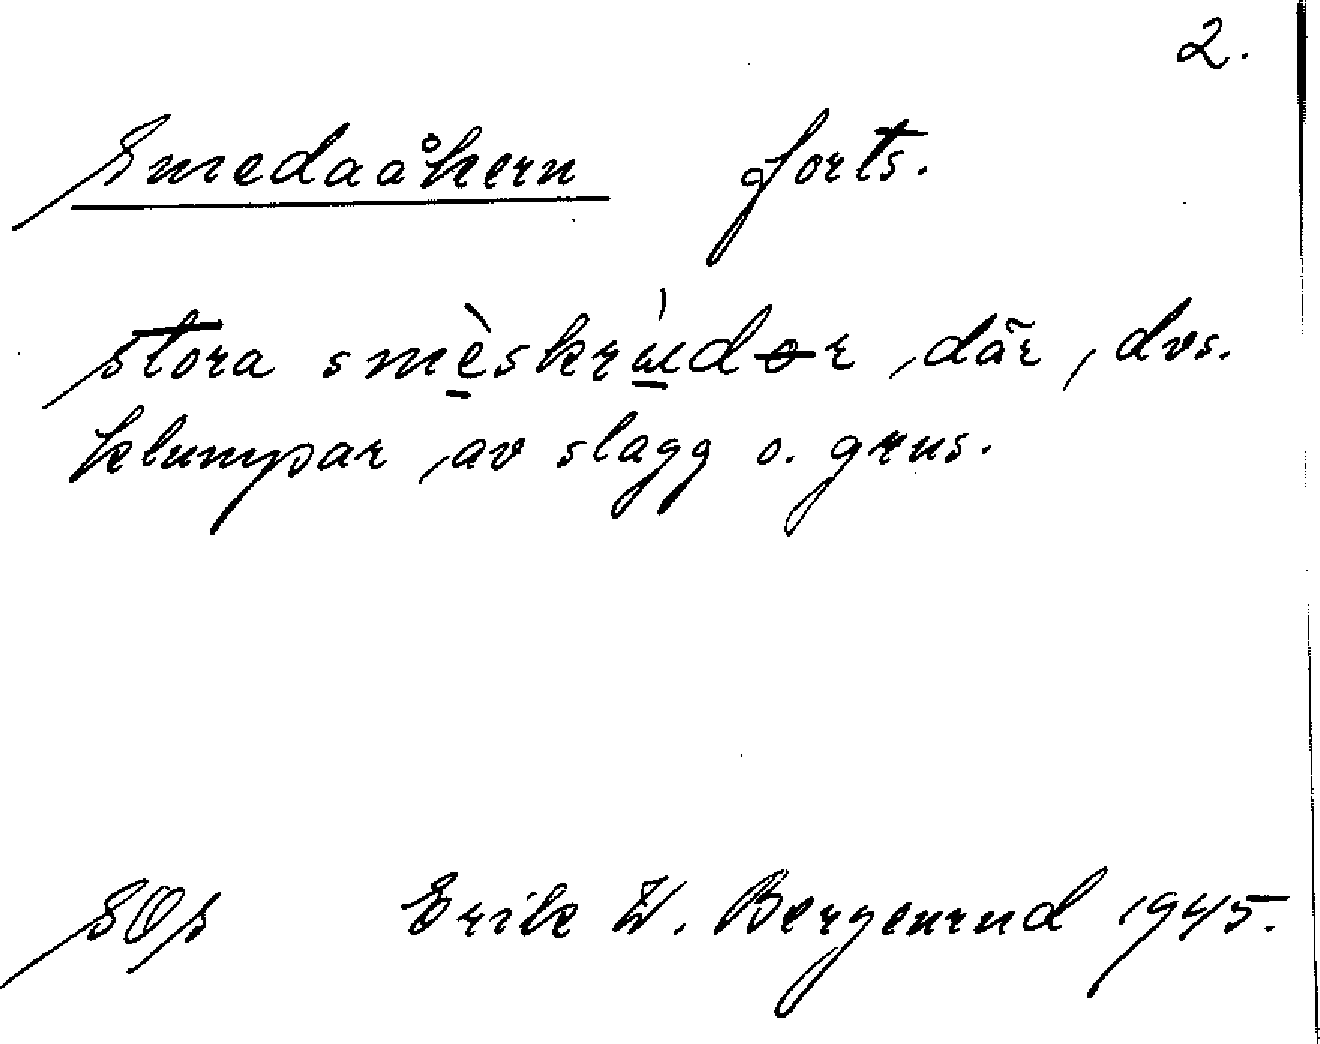 2.
Smedaåkern forts.
stora smèskrùdɵr där, dvs.
klumpar av slagg o. grus.
SOs Erik W. Bergenrud 1945.